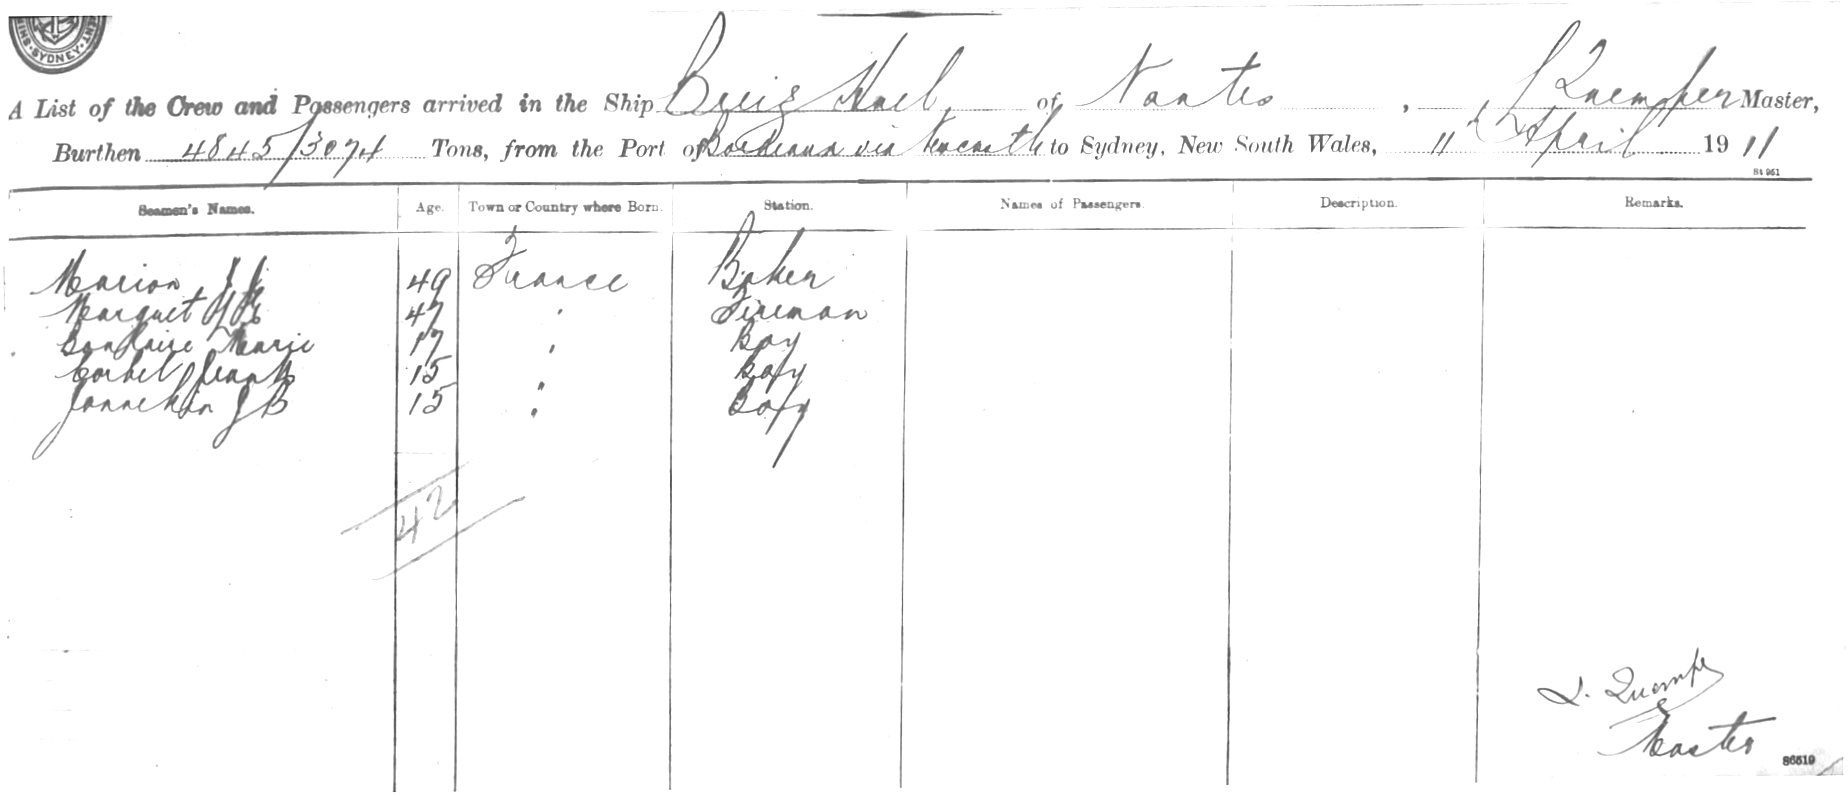 SYDNEY
A List of the Crew and Passengers arrived in the Ship Breiz Huel of Nantes, L Quemper Master,
Burthen 4845/3074 Tons, from the Port of Bordeaux via Newcastle to Sydney, New South Wales, 11th April 1911
St 951
Seamen's Names. Age. Town or Country where Born. Station. Names of Passengers. Description. Remarks.
Marion 49 France Baker
Marquet 47 " Fireman
Marie 17 " Boy
Corbel Jean 15 " Boy
J B 15 " Boy
42
L. Quemper
Master
86519